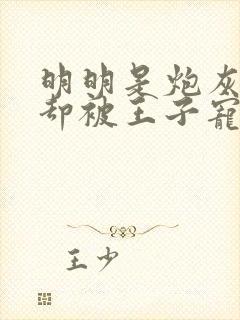 明明是炮灰
却被王子寵
王少